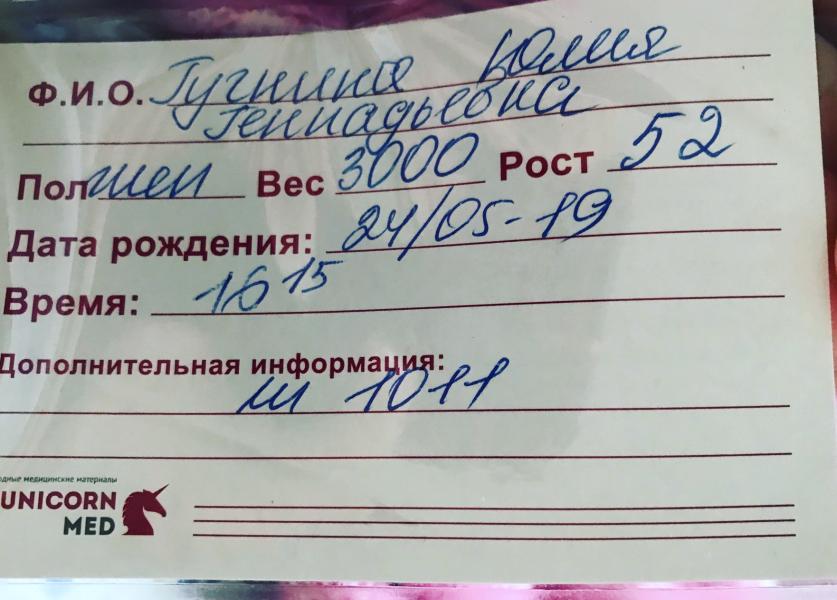 Ф.И.О. Гугнина Юлия
Геннадьевна
Пол жен Вес 3000 Рост 52
Дата рождения: 24/05-19
Время: 16 15
Дополнительная информация:
м 1011
одные медицинские материалы
UNICORN
MED